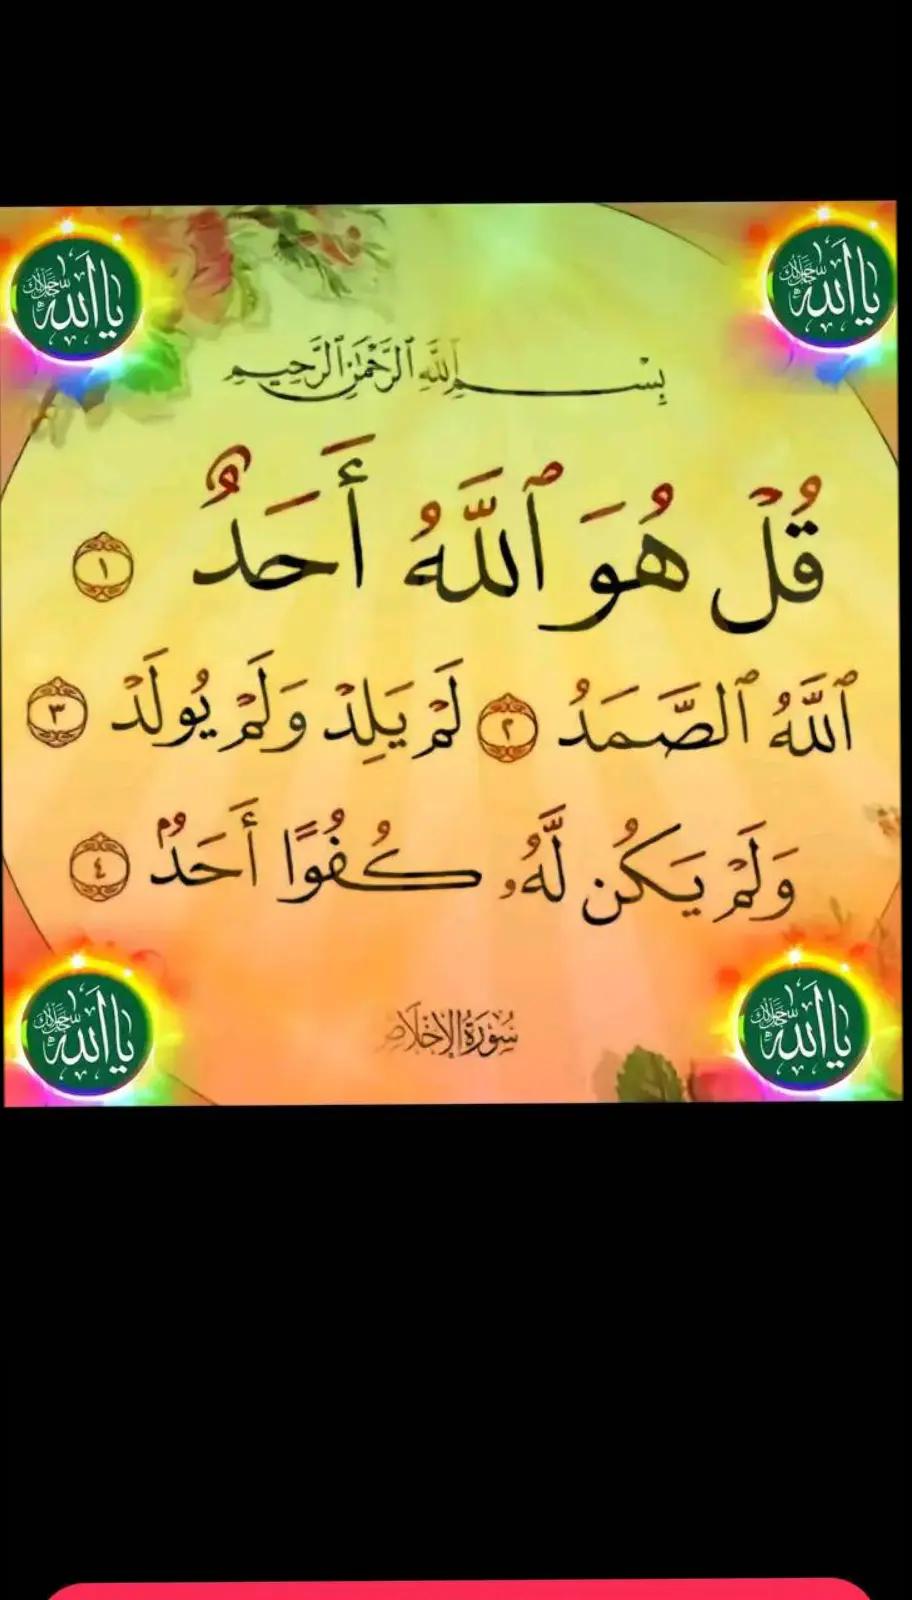 يا الله جل جلاله
يا الله جل جلاله
بِسْمِ ٱللَّهِ ٱلرَّحْمَٰنِ ٱلرَّحِيمِ
قُلْ هُوَ ٱللَّهُ أَحَدٌ ١
ٱللَّهُ ٱلصَّمَدُ ٢ لَمْ يَلِدْ وَلَمْ يُولَدْ ٣
وَلَمْ يَكُن لَّهُۥ كُفُوًا أَحَدٌۢ ٤
يا الله جل جلاله
يا الله جل جلاله
سُورَةُ الإِخْلَاص